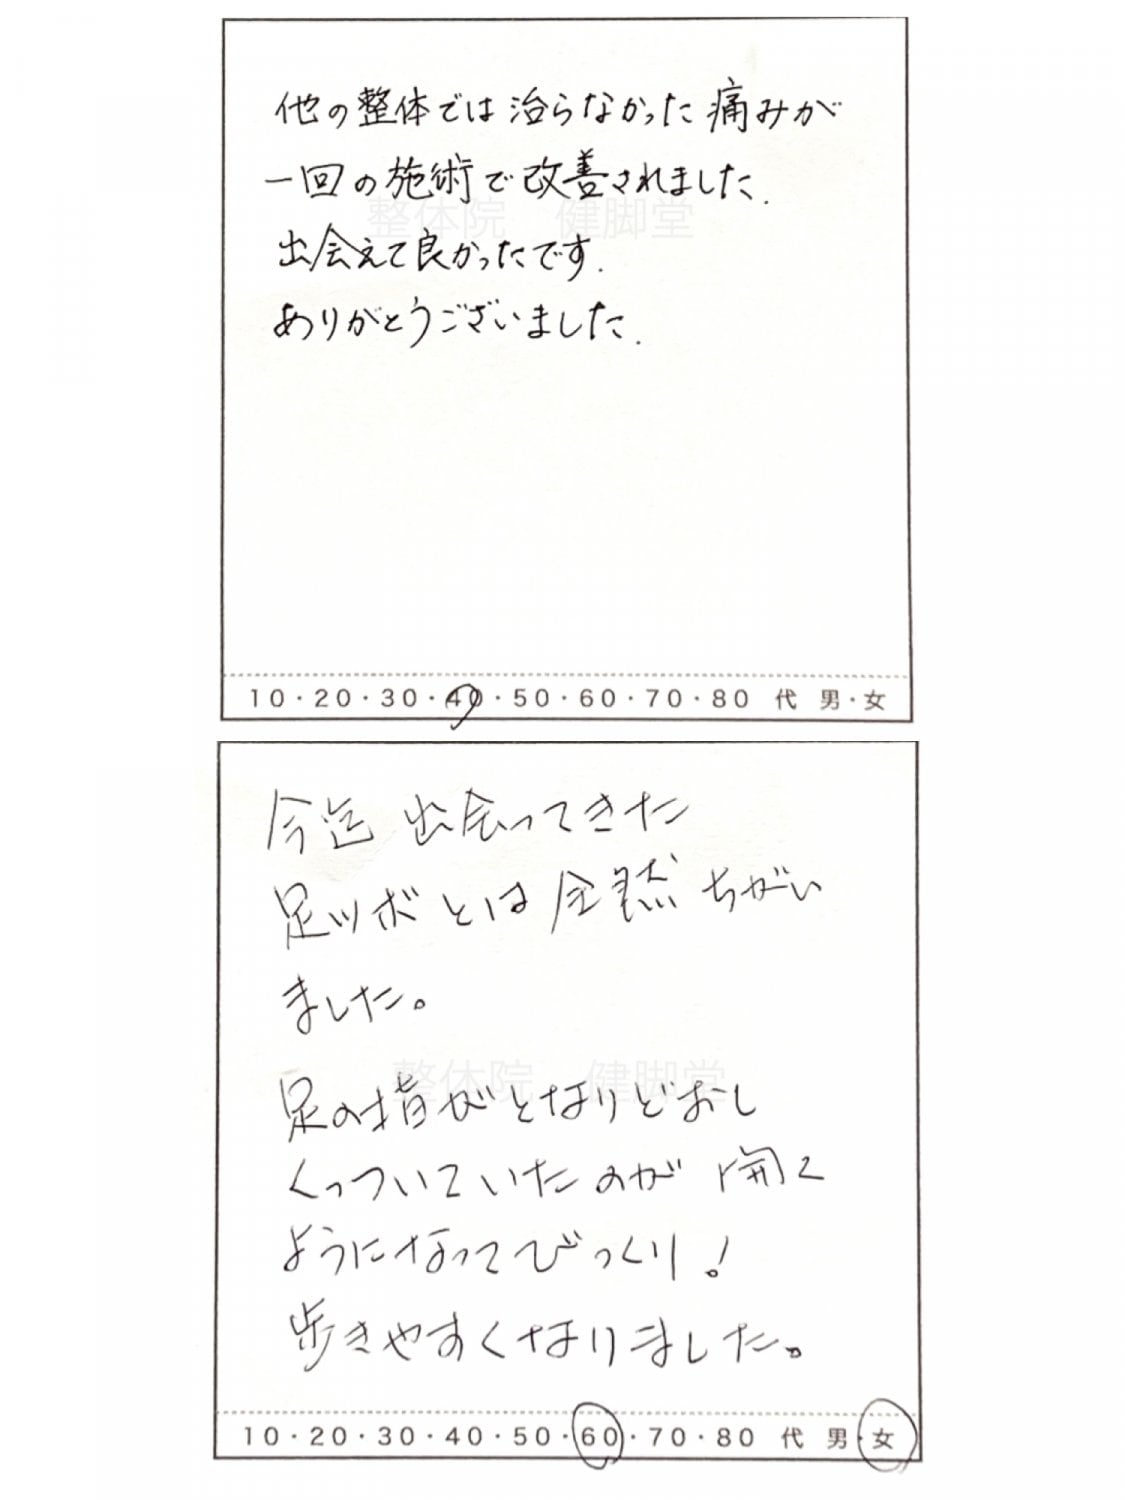 他の整体では治らなかった痛みが
一回の施術で改善されました.
整体院 健脚堂
出会えて良かったです.
ありがとうございました.
10・20・30・40・50・60・70・80 代 男・女
今迄 出会ってきた
足ツボとは全然ちがい
ました。
整体院 健脚堂
足の指がとなりどおし
くっついていたのが 開く
ようになってびっくり!
歩きやすくなりました。
10・20・30・40・50・60・70・80 代 男・女